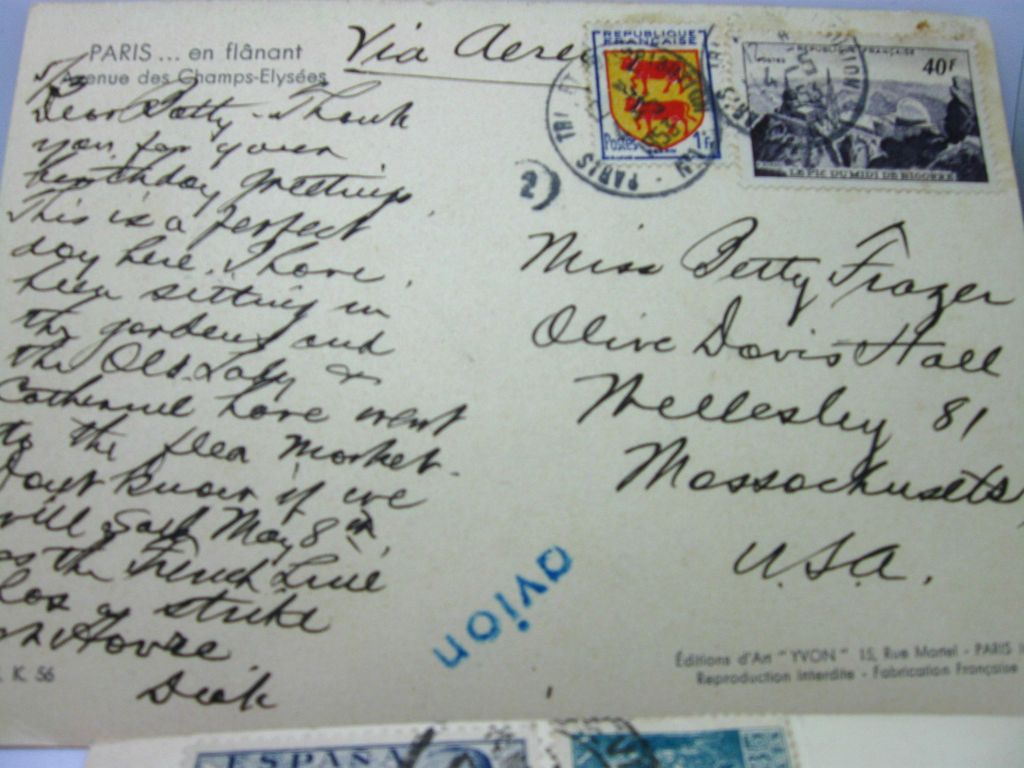 PARIS ... en flânant
Avenue des Champs-Elysées
Via Aereo
REPUBLIQUE
FRANÇAISE
Postes
1F
REPUBLIQUE FRANÇAISE
POSTES
40F
LE PIC DU MIDI DE BIGORRE
PARIS
2)
5/2
Dear Betty - Thank
you for your
birthday greetings
This is a perfect
day here. I have
been sitting in
the gardens and
the Old Lady &
Catherine have went
to the flea market.
Don't know if we
will sail May 8th,
as the French Line
has a strike
at Havre.
Dick
Miss Betty Frazer
Olive Davis Hall
Wellesley 81
Massachusetts
U.S.A.
avion
K. 56
Éditions d'Art "YVON" 15, Rue Martel - PARIS
Reproduction Interdite - Fabrication Française
ESPAÑA